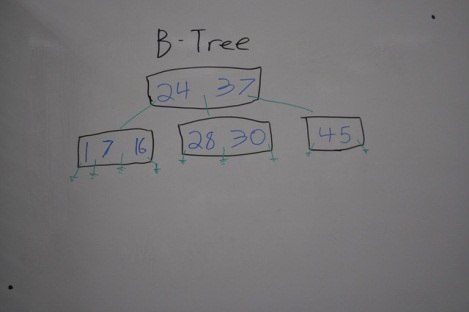 B-Tree
24 37
1 7 16 28 30 45